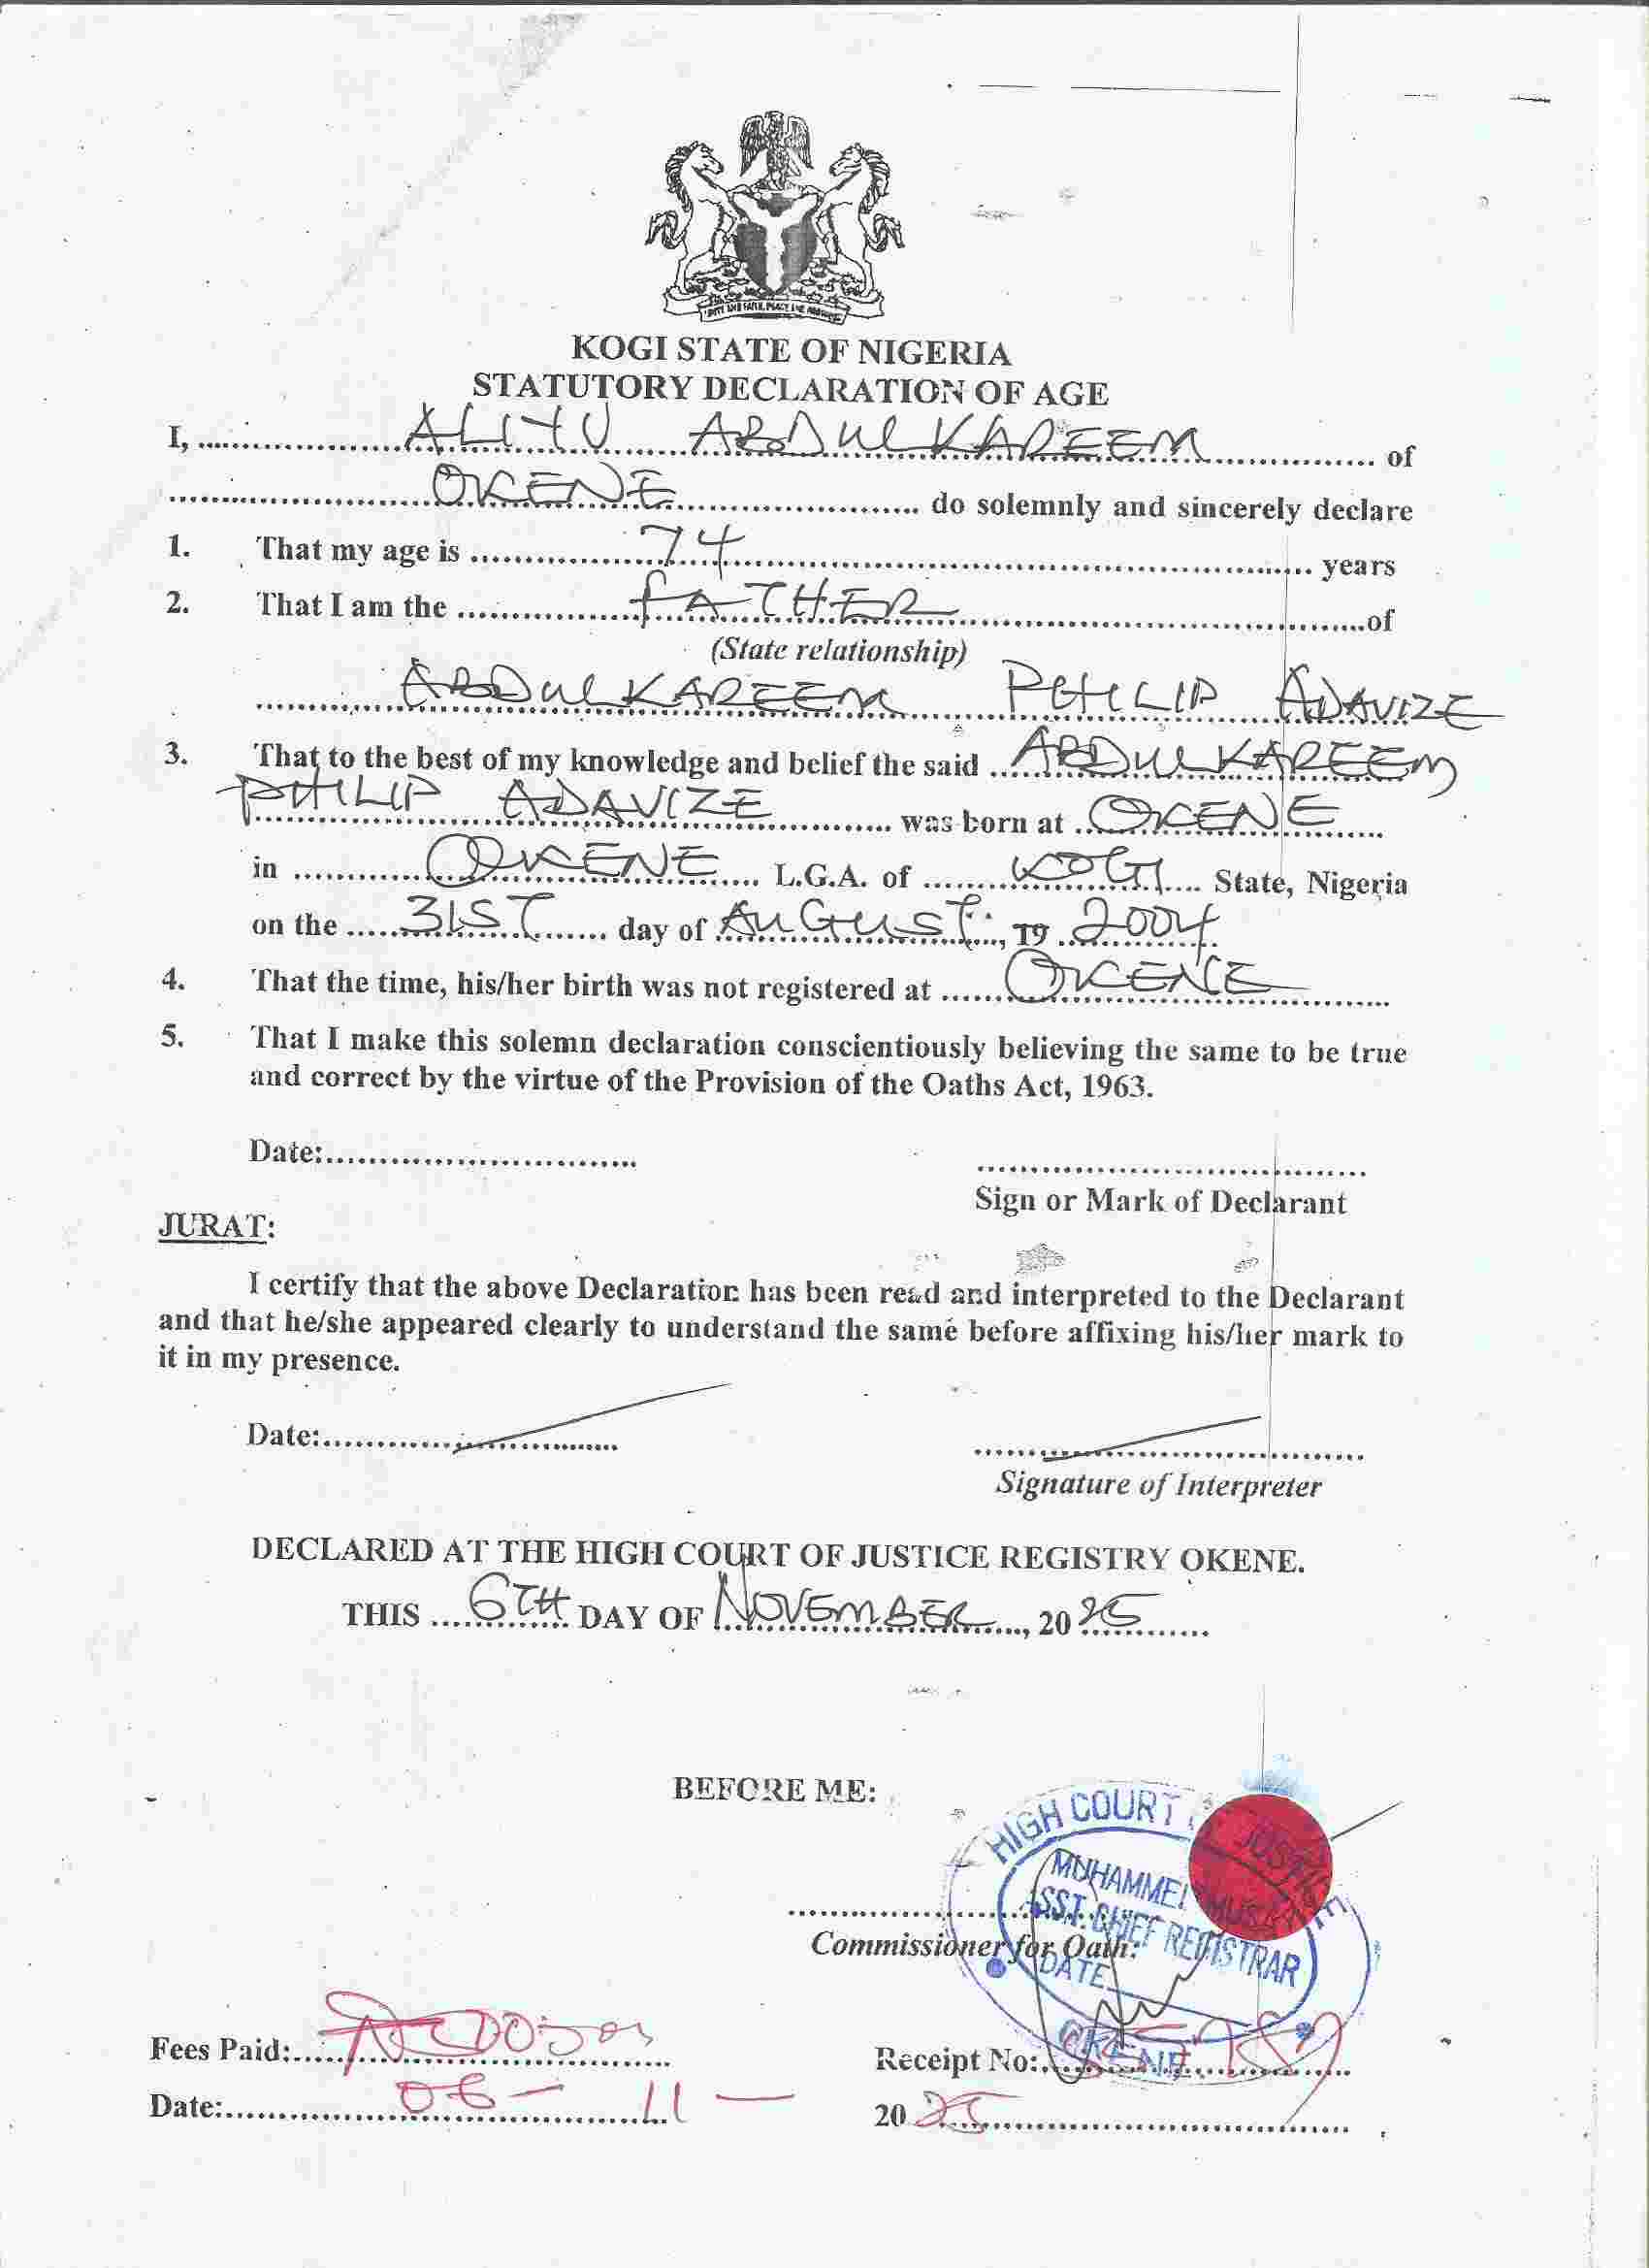 KOGI STATE OF NIGERIA
STATUTORY DECLARATION OF AGE
I, ALIYU ABDULKAREEM of
OKENE do solemnly and sincerely declare
1. That my age is 74 years
2. That I am the FATHER of
(State relationship)
ABDULKAREEM PHILIP ADAVIZE
3. That to the best of my knowledge and belief the said ABDULKAREEM
PHILIP ADAVIZE was born at OKENE
in OKENE L.G.A. of KOGI State, Nigeria
on the 31ST day of AUGUST, 19 2004
4. That the time, his/her birth was not registered at OKENE
5. That I make this solemn declaration conscientiously believing the same to be true
and correct by the virtue of the Provision of the Oaths Act, 1963.
Date:
Sign or Mark of Declarant
JURAT:
I certify that the above Declaration has been read and interpreted to the Declarant
and that he/she appeared clearly to understand the same before affixing his/her mark to
it in my presence.
Date:
Signature of Interpreter
DECLARED AT THE HIGH COURT OF JUSTICE REGISTRY OKENE.
THIS 6TH DAY OF NOVEMBER, 2025
BEFORE ME:
HIGH COURT JUSTICE
MUHAMMED MUSA
ASST. CHIEF REGISTRAR
Commissioner for Oath:
DATE
OKENE
Fees Paid:
Receipt No:
Date: 06 - 11 - 2025